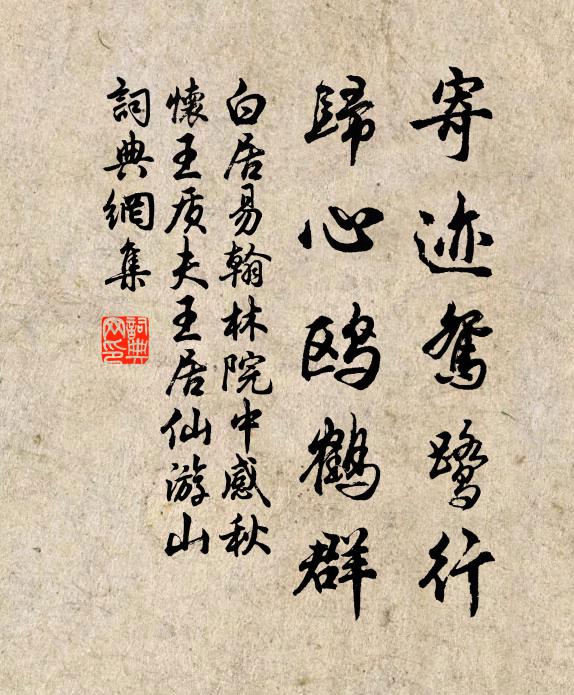 寄迹鴛鷺行
歸心鸥鶴群
白居易翰林院中感秋
懷王质夫王居仙游山
詞典網集
詞典網印